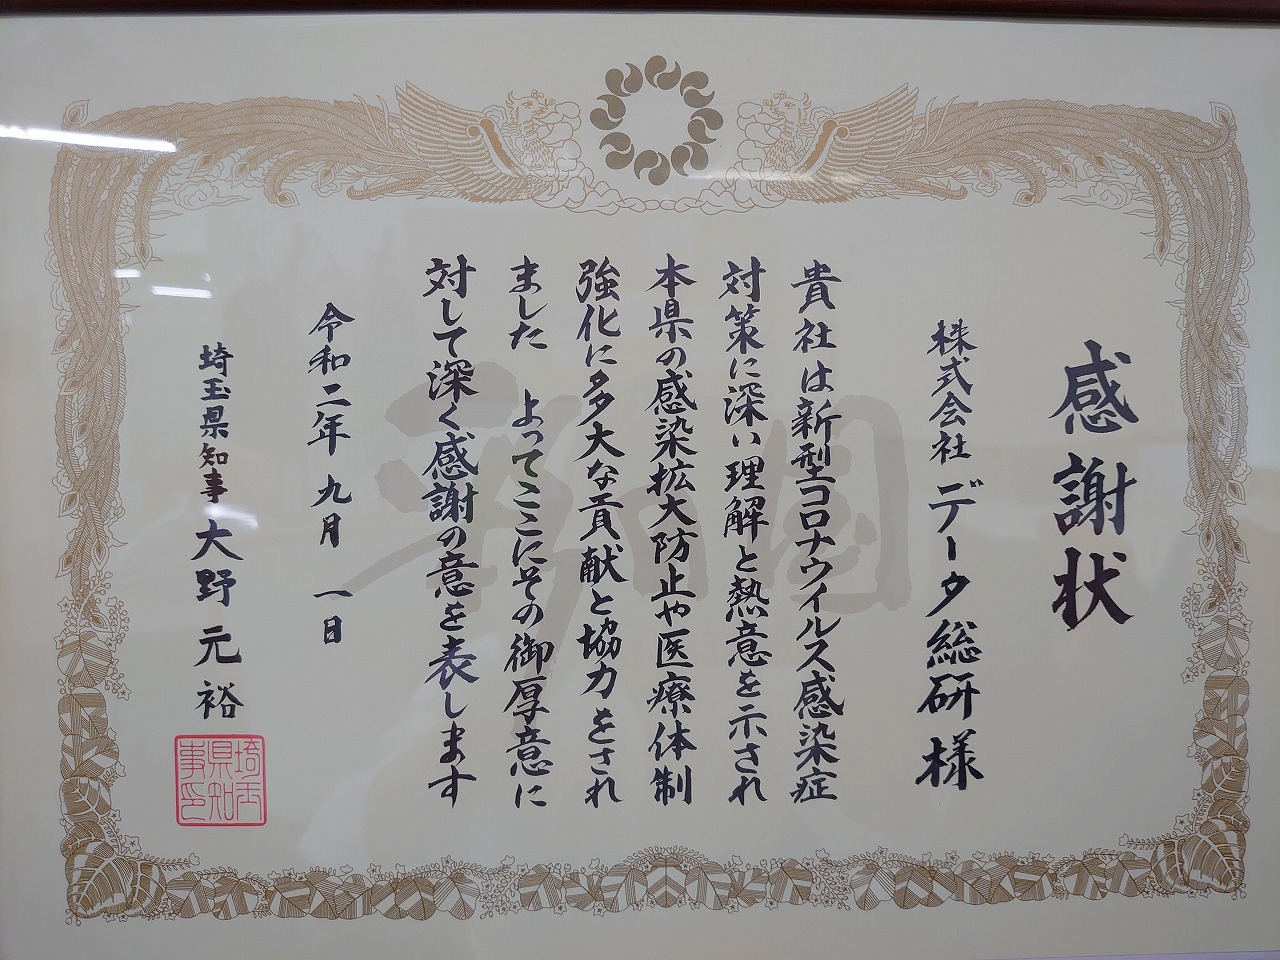 感謝状
株式会社 データ総研 様
貴社は新型コロナウイルス感染症
対策に深い理解と熱意を示され
本県の感染拡大防止や医療体制
強化に多大な貢献と協力をされ
ました よってここにその御厚意に
対して深く感謝の意を表します
令和二年 九月 一日
埼玉県知事 大野 元裕
埼玉
県知
事印